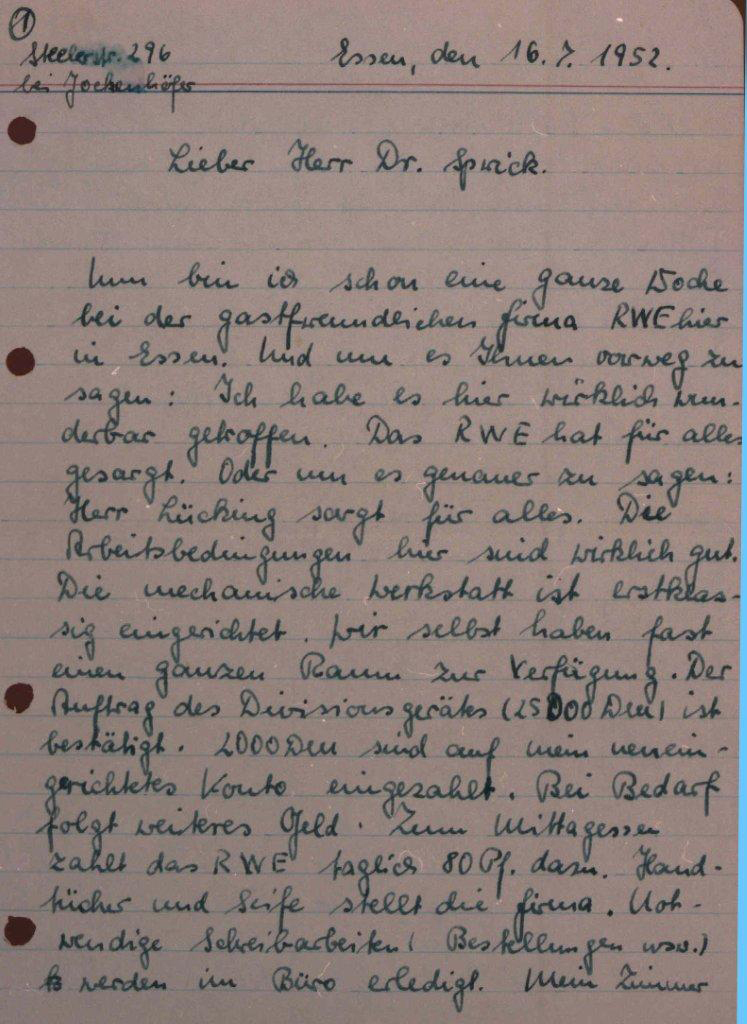 ①
Steelerstr. 296
bei Jockenhöfer
Essen, den 16.7.1952.
Lieber Herr Dr. Sprick.
Nun bin ich schon eine ganze Woche
bei der gastfreundlichen Firma RWE hier
in Essen. Und um es Ihnen vorweg zu
sagen: Ich habe es hier wirklich wun-
derbar getroffen. Das RWE hat für alles
gesorgt. Oder um es genauer zu sagen:
Herr Lücking sorgt für alles. Die
Arbeitsbedingungen hier sind wirklich gut.
Die mechanische Werkstatt ist erstklas-
sig eingerichtet. Wir selbst haben fast
einen ganzen Raum zur Verfügung. Der
Auftrag des Divisionsgeräts (25000 DM) ist
bestätigt. 2000 DM sind auf mein neuein-
gerichtetes Konto eingezahlt. Bei Bedarf
folgt weiteres Geld. Zum Mittagessen
zahlt das RWE täglich 80 Pf. dazu. Hand-
tücher und Seife stellt die Firma. Not-
wendige Schreibarbeiten (Bestellungen usw.)
werden im Büro erledigt. Mein Zimmer